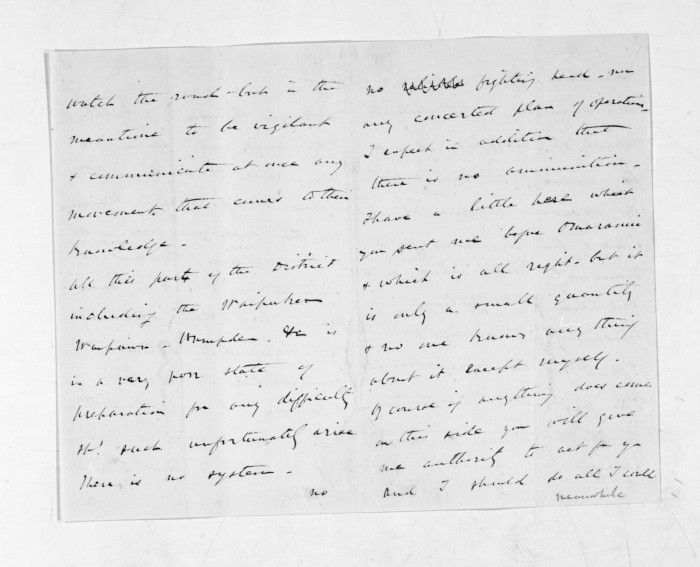 watch the road - but in the
meantime to be vigilant
& communicate at once any
movement that comes to their
knowledge -
All this part of the District
including the Waipukura
Waipawa - Hampden - &c is
in a very poor state of
preparation for any difficulty
shd. such unfortunately arise
There is no system -
no
no fighting head - nor
any concerted plan of operation -
I expect in addition that
there is no ammunition -
I have a little here which
you sent me before Omaranui
& which is all right - but it
is only a small quantity
& no one knows anything
about it except myself -
Of course if anything does come
on this side you will give
me authority to act for yo
and I should do all I could
meanwhile